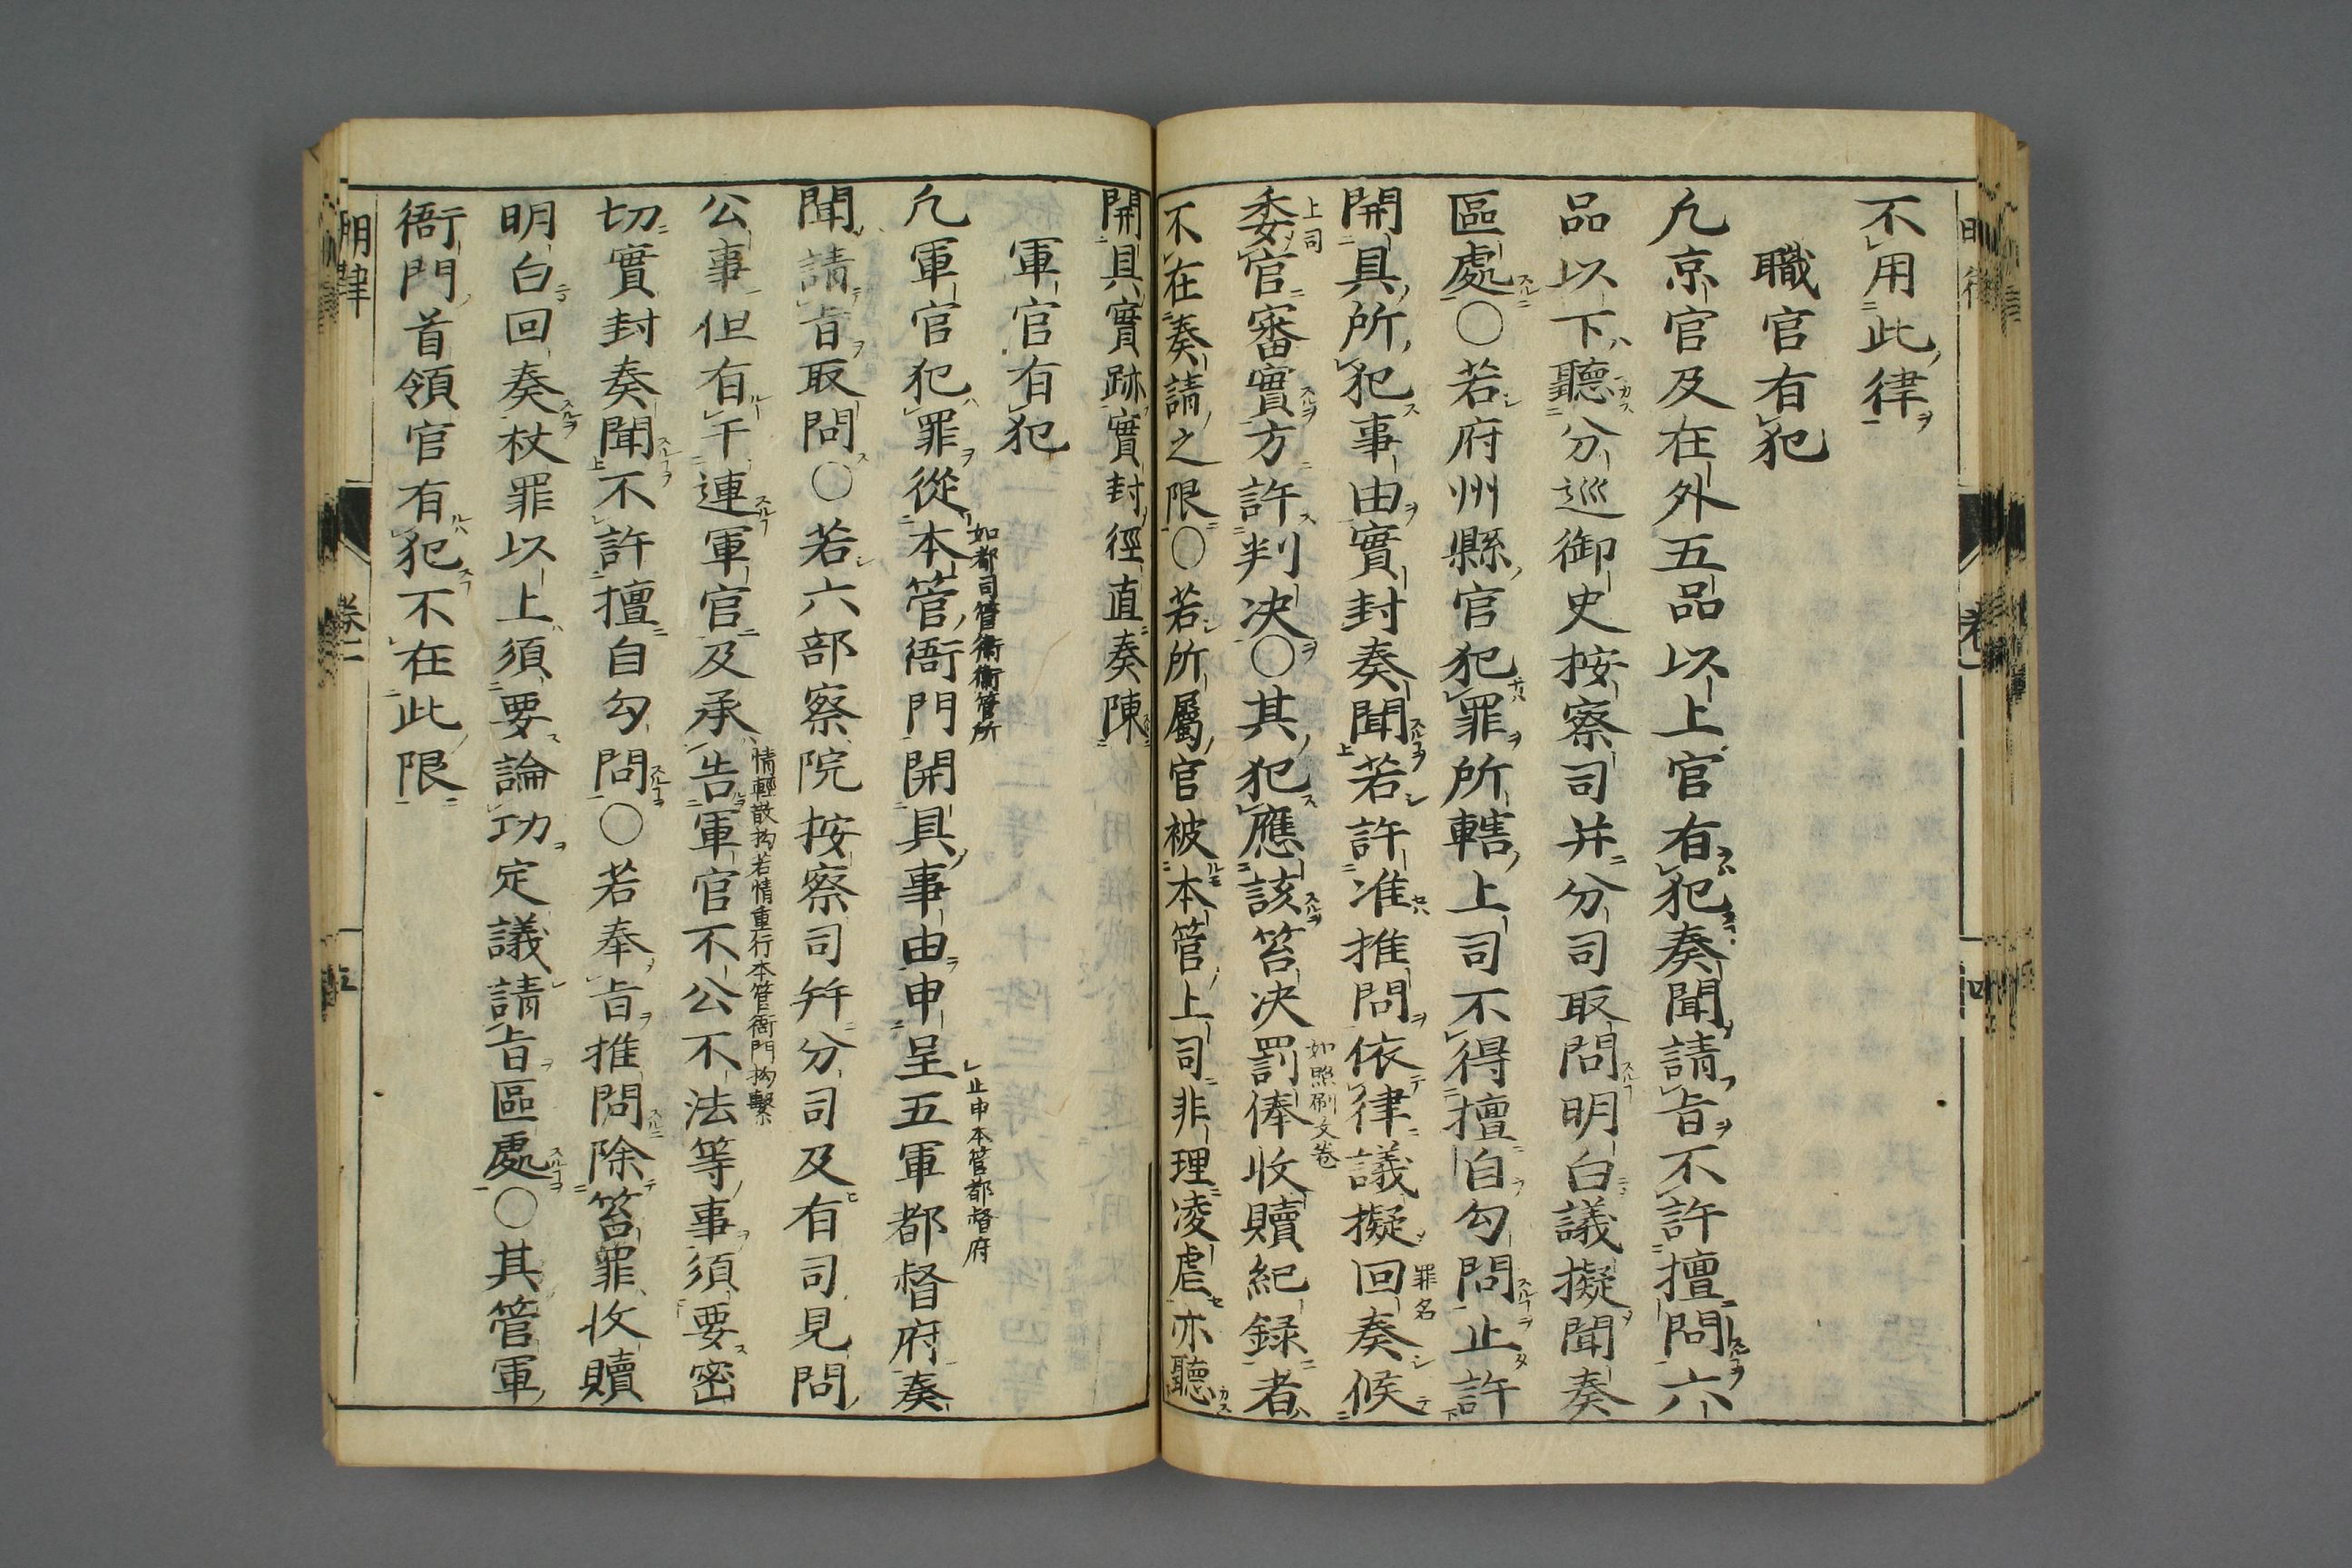 不用此律
職官有犯
凢京官及在外五品以上官有犯奏聞請旨不許擅問六
品以下聽分巡御史按察司并分司取問明白議擬聞奏
區處○若府州縣官犯罪所轄上司不得擅自勾問止許
開具所犯事由實封奏聞若許准推問依律議擬回奏候
罪名
上司
委官審實方許判决○其犯應該笞决罰俸收贖紀録者
如照刷文卷
不在奏請之限○若所屬官被本管上司非理凌虐亦聽
開具實跡實封徑直奏陳
軍官有犯
凢軍官犯罪從本管衙門開具事由申呈五軍都督府奏
如都司管衛衛管所
止申本管都督府
聞請旨取問○若六部察院按察司并分司及有司見問
公事但有干連軍官及承告軍官不公不法等事須要密
情輕散拘若情重行本管衙門拘繫
切實封奏聞不許擅自勾問○若奉旨推問除笞罪收贖
明白回奏杖罪以上須要論功定議請旨區處○其管軍
衙門首領官有犯不在此限
明律
卷一
五